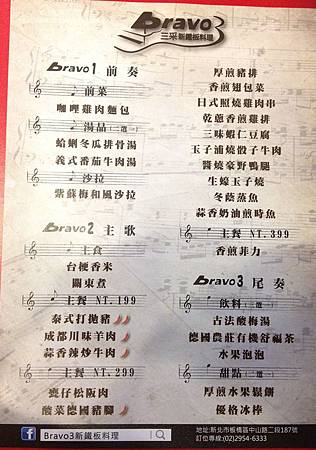 Bravo3
三采新鐵板料理
Bravo1 前奏
前菜
咖哩雞肉麵包
湯品(二選一)
蛤蜊冬瓜排骨湯
義式番茄牛肉湯
沙拉
紫蘇梅和風沙拉
Bravo2 主歌
主食
台梗香米
關東煮
主餐 NT.199
泰式打拋豬
成都川味羊肉
蒜香辣炒牛肉
主餐 NT.299
甕仔松阪肉
酸菜德國豬腳
厚煎豬排
香煎翅包菜
日式照燒雞肉串
乾蔥香煎雞排
三味蝦仁豆腐
玉子浦燒骰子牛肉
醬燒豪野鴨腿
生蠔玉子燒
冬蔭蒸魚
蒜香奶油煎時魚
主餐 NT.399
香煎菲力
Bravo3 尾奏
飲料(選一)
古法酸梅湯
德國農莊有機舒福茶
水果泡泡
甜點(選一)
厚煎水果鬆餅
優格冰棒
Bravo3新鐵板料理
地址:新北市板橋區中山路二段187號
訂位專線:(02)2954-6333